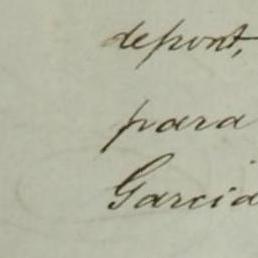 depont,
para
Garcia